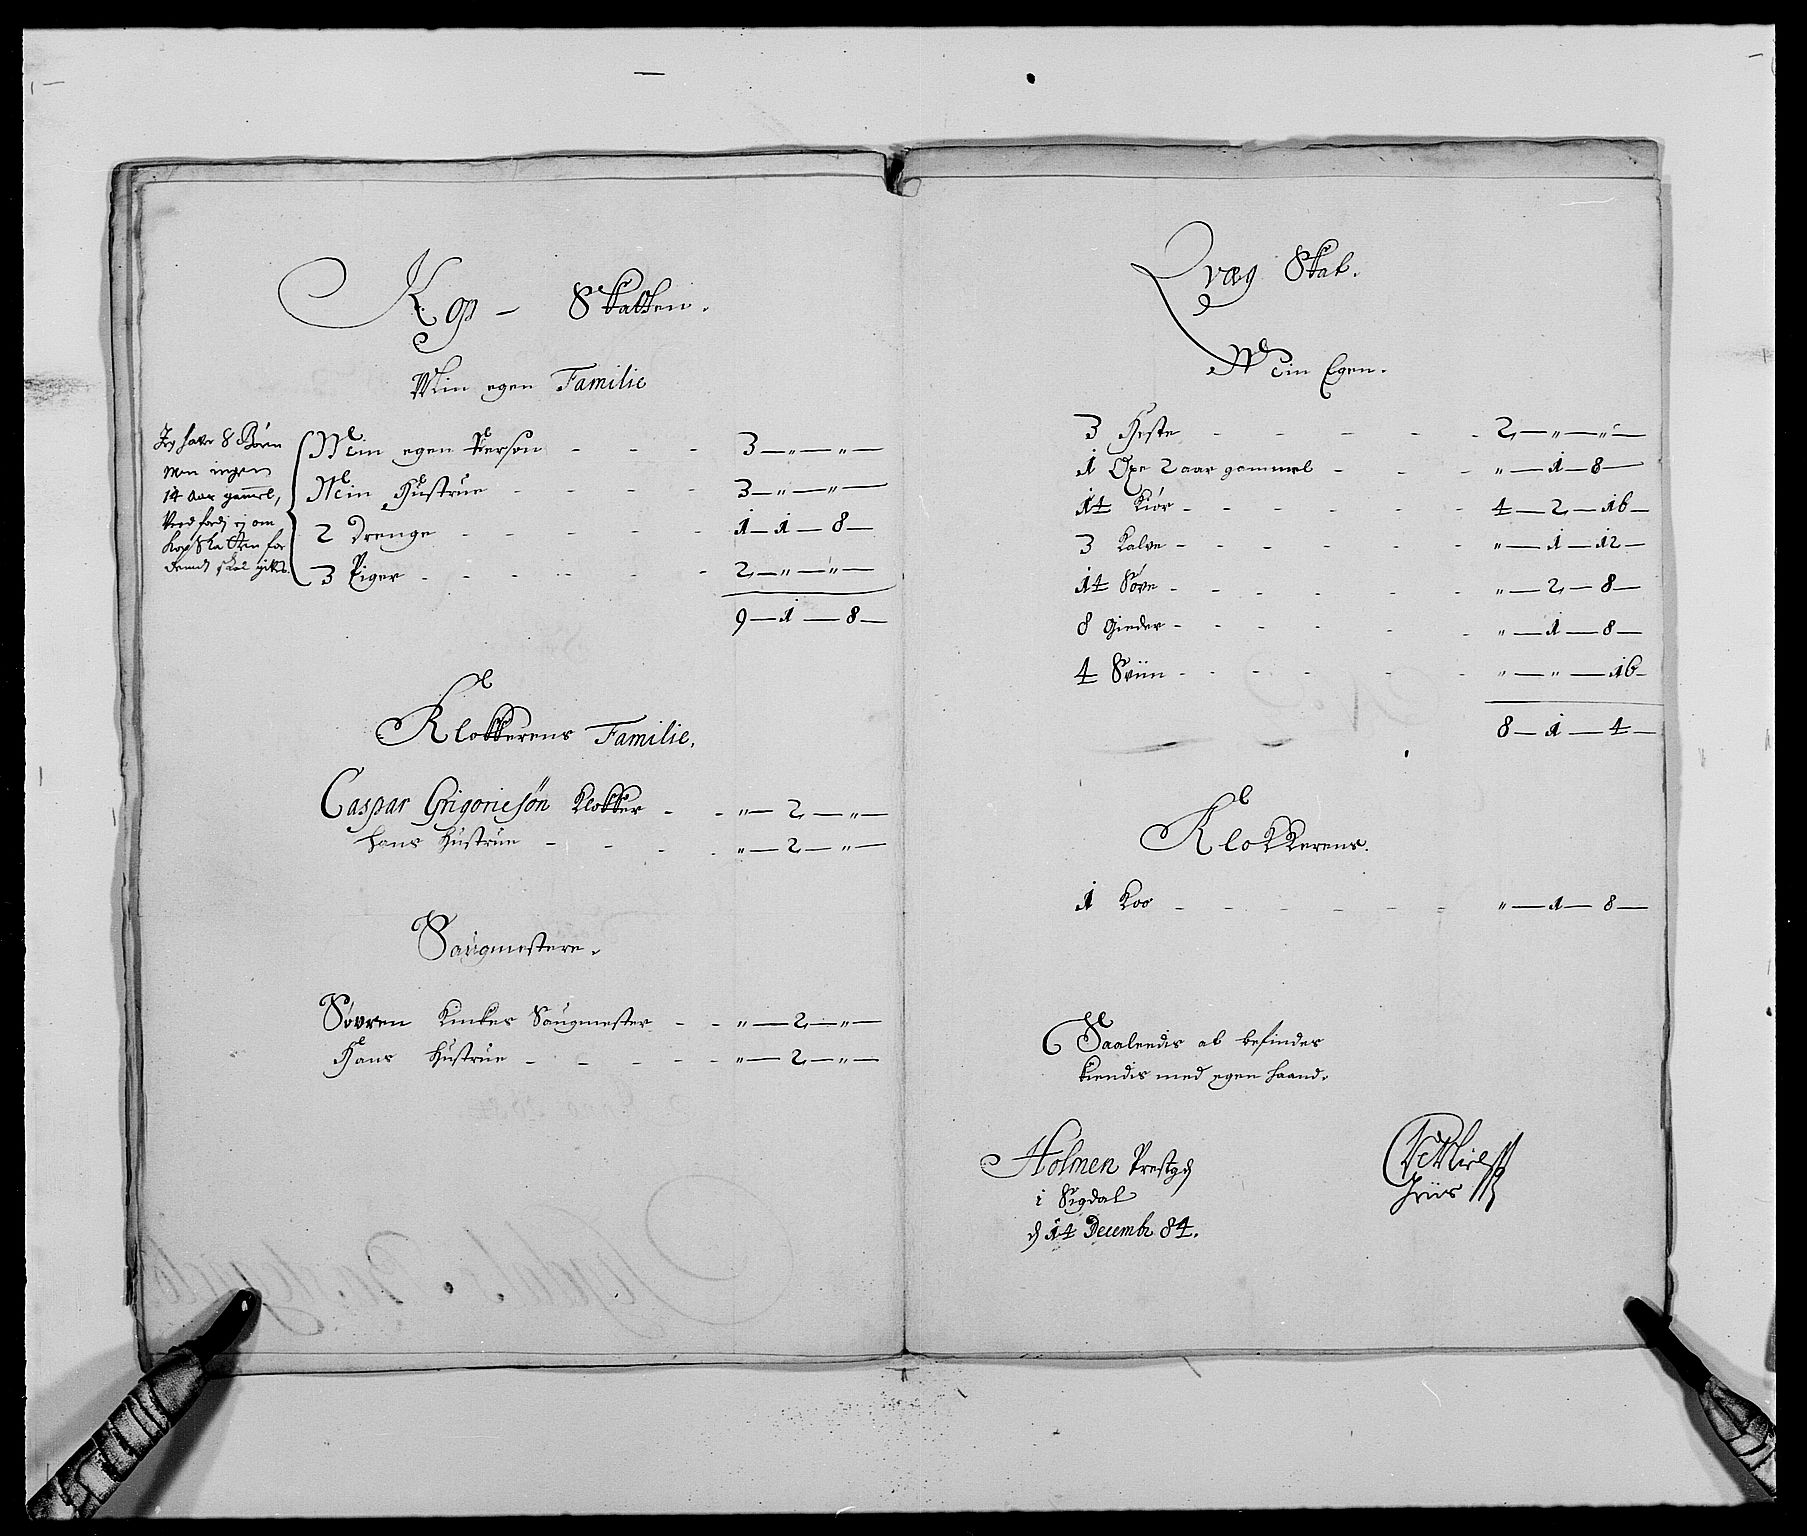 Kop - Skatten.
Min egen Familie
Jeg hafver 8 Børn
men ingen
14 Aar gammel,
Veed fordj ej om
Kop Skatten for
dennem skal gifves.
Min egen Person - - - 3 — „ — „ —
Min Hustrue - - - - 3 — „ — „ —
2 Drenge - - - - - 1 — 1 — 8 —
3 Piger - - - - - 2 — „ — „ —
9 — 1 — 8 —
Klokkerens Familie.
Caspar Grigoriesøn Klokker - - „ — 2 — „ —
hans Hustrue - - - - „ — 2 — „ —
Saugmestere.
Søvren Saugmester - - „ — 2 — „ —
Hans Hustrue - - - - - „ — 2 — „ —
Qvæg Skat.
Min Egen.
3 Heste - - - - - 2 — „ — „ —
1 Oxe 2 aar gammel - - - „ — 1 — 8 —
14 Kiør - - - - - - 4 — 2 — 16 —
3 Kalve - - - - - - „ — 1 — 12 —
14 Søve - - - - - - „ — 2 — 8 —
8 Gieder - - - - - - „ — 1 — 8 —
4 Sviin - - - - - - „ — „ — 16 —
8 — 1 — 4 —
Klokkerens.
1 Koo - - - - - - „ — 1 — 8 —
Saaleedis at befindes
kiendis med egen haand.
Holmen Prestgd
i Sigdal
d 14 Decembr 84.